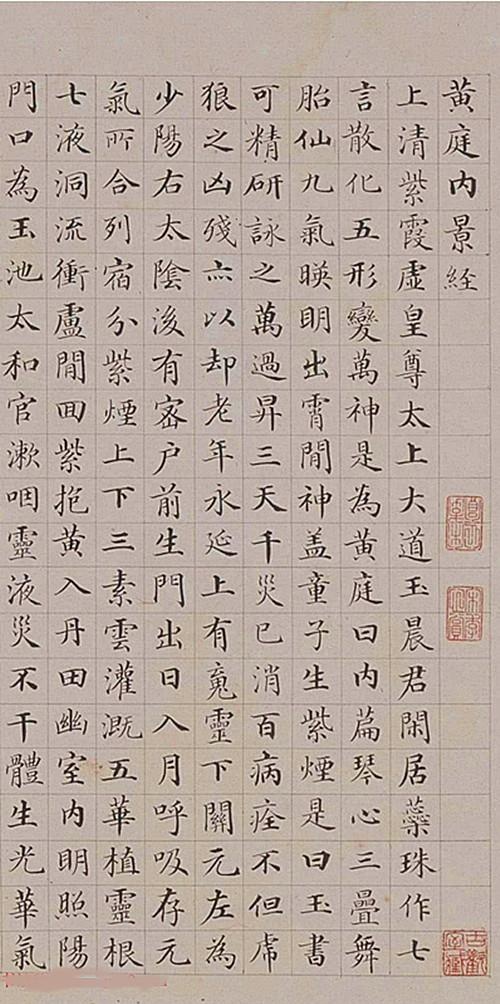 黄庭内景経
上清紫霞虛皇尊太上大道玉晨君閑居蘂珠作七
言散化五形變萬神是為黄庭曰内篇琴心三疊舞
胎仙九氣暎明出霄間神盖童子生紫煙是曰玉書
可精研詠之萬過昇三天千災已消百病痊不但虎
狼之凶殘亦以却老年永延上有䰟靈下關元左為
少陽右太陰後有密户前生門出日入月呼吸存元
氣所合列宿分紫煙上下三素雲灌溉五華植靈根
七液洞流衝廬間回紫抱黄入丹田幽室内明照陽
門口為玉池太和官漱咽靈液災不干體生光華氣